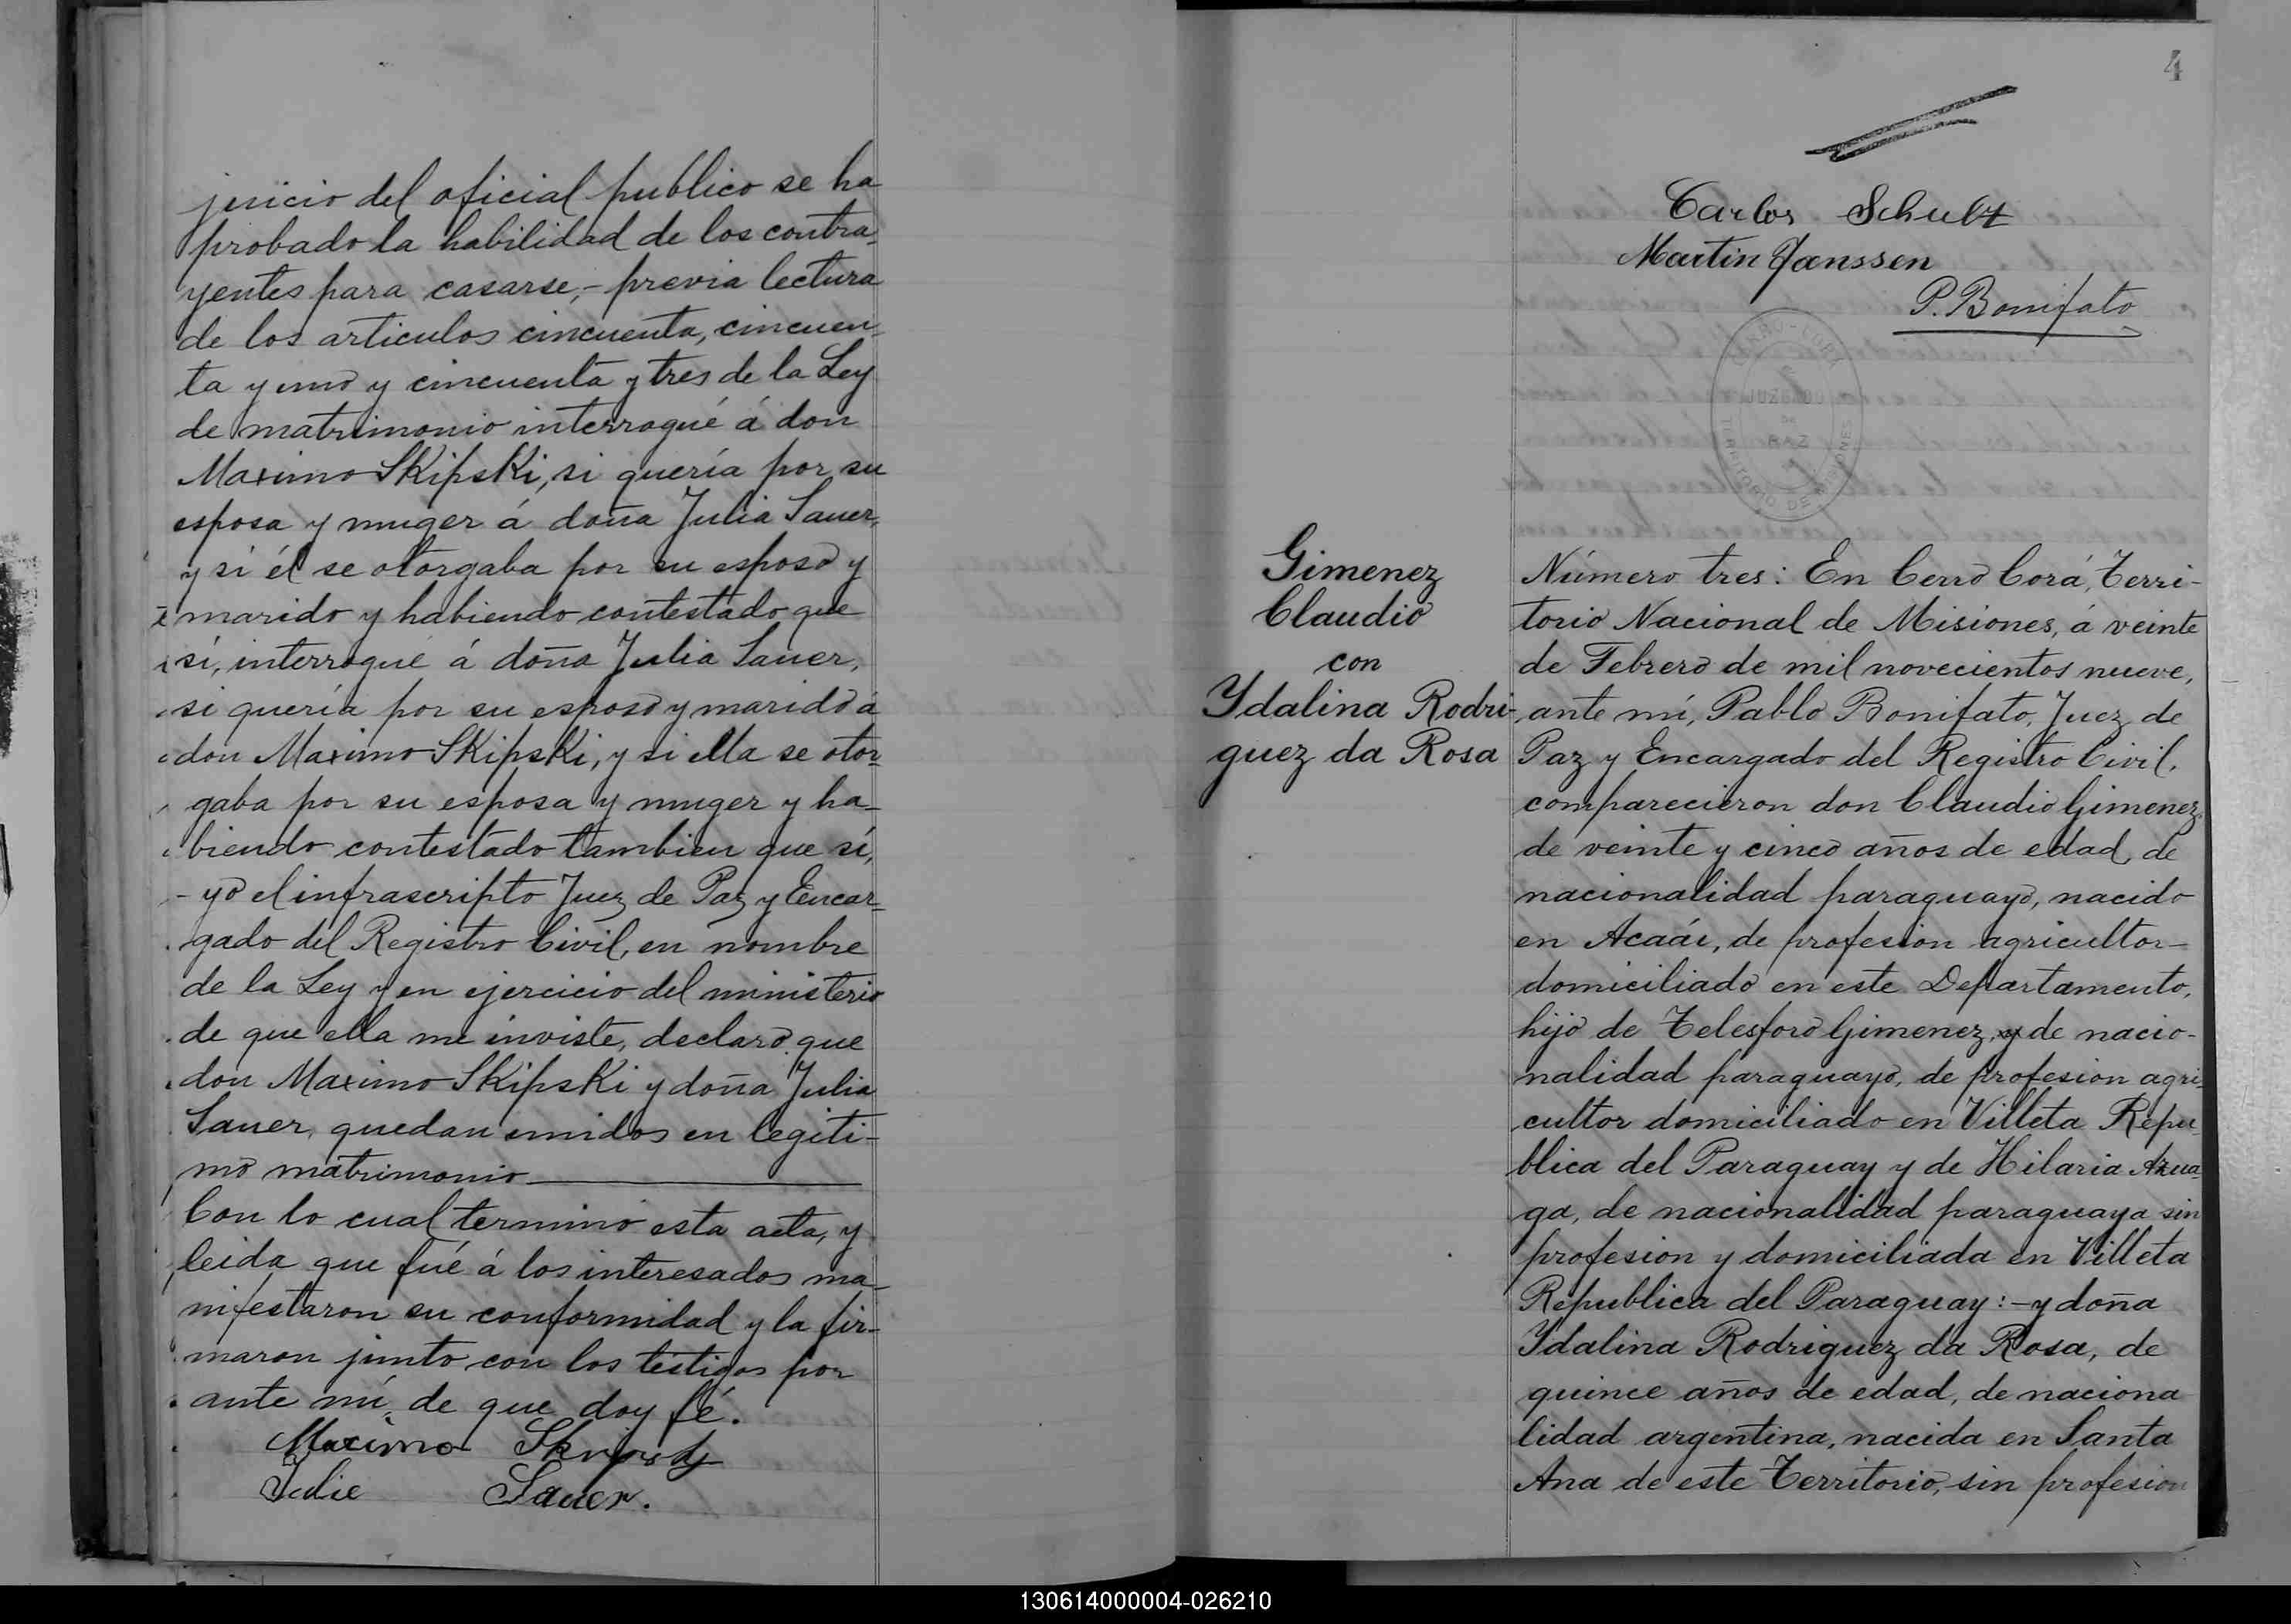 juicio del oficial publico se ha
probado la habilidad de los contra-
yentes para casarse,- previa lectura
de los articulos cincuenta, cincuen-
ta y uno y cincuenta y tres de la Ley
de matrimonio interrogué á don
Maximo Skipski, si quería por su
esposa y muger á doña Julia Sauer,
y si él se otorgaba por su esposo y
marido y habiendo contestado que
sí, interrogué á doña Julia Sauer,
si quería por su esposo y marido á
don Maximo Skipski, y si ella se otor-
gaba por su esposa y muger y ha-
biendo contestado tambien que sí,
- yo el infrascripto Juez de Paz y Encar-
gado del Registro Civil, en nombre
de la Ley y en ejercicio del ministerio
de que ella me inviste, declaro que
don Maximo Skipski y doña Julia
Sauer, quedan unidos en legiti-
mo matrimonio
Con lo cual termino esta acta, y
leida que fué á los interesados ma-
nifestaron su conformidad y la fir-
maron junto con los testigos por
ante mí, de que doy fé.
Maximo
Julie Sauer.
4
Carlos Schultz
Martin Janssen
P. Bonifato
JUZGADO
DE
PAZ
TERRITORIO DE MISIONES
Gimenez
Claudio
con
Ydalina Rodri-
guez da Rosa
Número tres: En Cerro Corá, Terri-
torio Nacional de Misiones, á veinte
de Febrero de mil novecientos nueve,
ante mí, Pablo Bonifato, Juez de
Paz y Encargado del Registro Civil,
comparecieron don Claudio Gimenez,
de veinte y cinco años de edad, de
nacionalidad paraguayo, nacido
en Acaái, de profesion agricultor-
domiciliado en este Departamento,
hijo de Telesforo Gimenez, de nacio-
nalidad paraguayo, de profesion agri-
cultor domiciliado en Villeta Repu-
blica del Paraguay y de Hilaria Azua-
ga, de nacionalidad paraguaya sin
profesion y domiciliada en Villeta
Republica del Paraguay:- y doña
Ydalina Rodriguez da Rosa, de
quince años de edad, de naciona
lidad argentina, nacida en Santa
Ana de este Territorio, sin profesion
130614000004-026210